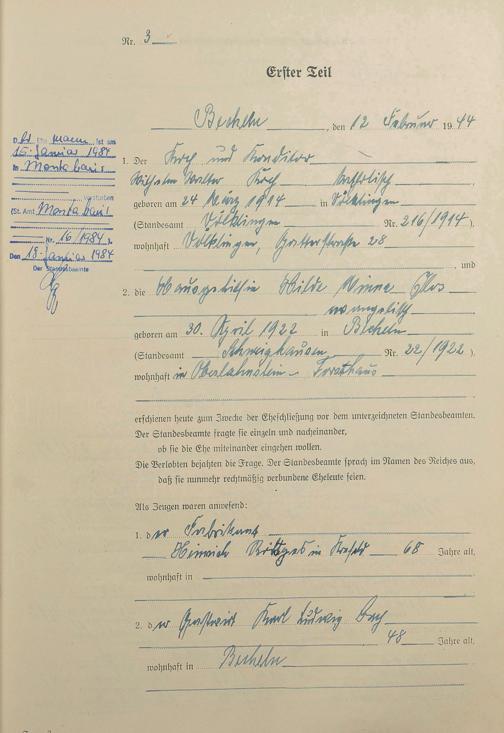 Nr. 3
Erster Teil
Becheln, den 12 Februar 1944
1. Der Koch und Konditor
Wilhelm Walter Koch katholisch
geboren am 24 März 1914 in Völklingen
(Standesamt Völklingen Nr. 216/1914),
wohnhaft Völklingen, 28
, und
2. die Hausgehilfin Hilde Minna
evangelisch
geboren am 30. April 1922 in Becheln
(Standesamt Schweighausen Nr. 22/1922),
wohnhaft in Oberlahnstein - Forsthaus
erschienen heute zum Zwecke der Eheschließung vor dem unterzeichneten Standesbeamten.
Der Standesbeamte fragte sie einzeln und nacheinander,
ob sie die Ehe miteinander eingehen wollen.
Die Verlobten bejahten die Frage. Der Standesbeamte sprach im Namen des Reiches aus,
daß sie nunmehr rechtmäßig verbundene Eheleute seien.
Als Zeugen waren anwesend:
1. der Fabrikant
Heinrich in Krefeld 68 Jahre alt,
wohnhaft in
2. der Gastwirt Karl Ludwig
48 Jahre alt,
wohnhaft in Becheln
Mann ist am
15. Januar 1984
in Montabaur
verstorben
(St. Amt Montabaur
Nr. 16/1984).
Den 18. Januar 1984
Der Standesbeamte